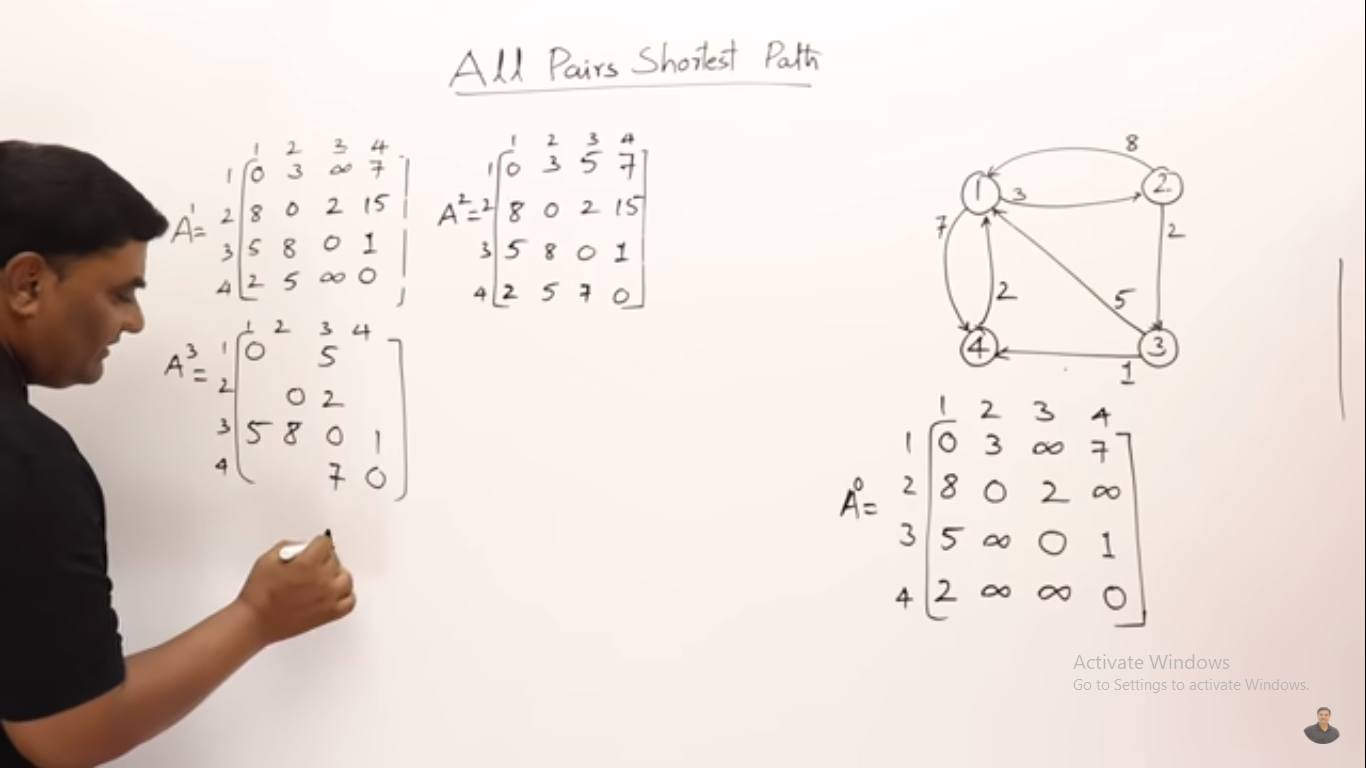 All Pairs Shortest Path
1 2 3 4
1 0 3 ∞ 7
A¹= 2 8 0 2 15
3 5 8 0 1
4 2 5 ∞ 0
1 2 3 4
1 0 3 5 7
A²= 2 8 0 2 15
3 5 8 0 1
4 2 5 7 0
1 2 3 4
A³= 1 0 5
2 0 2
3 5 8 0 1
4 7 0
8
1 3 2
7 2
2 5
4 3
1
1 2 3 4
1 0 3 ∞ 7
A⁰= 2 8 0 2 ∞
3 5 ∞ 0 1
4 2 ∞ ∞ 0
Activate Windows
Go to Settings to activate Windows.